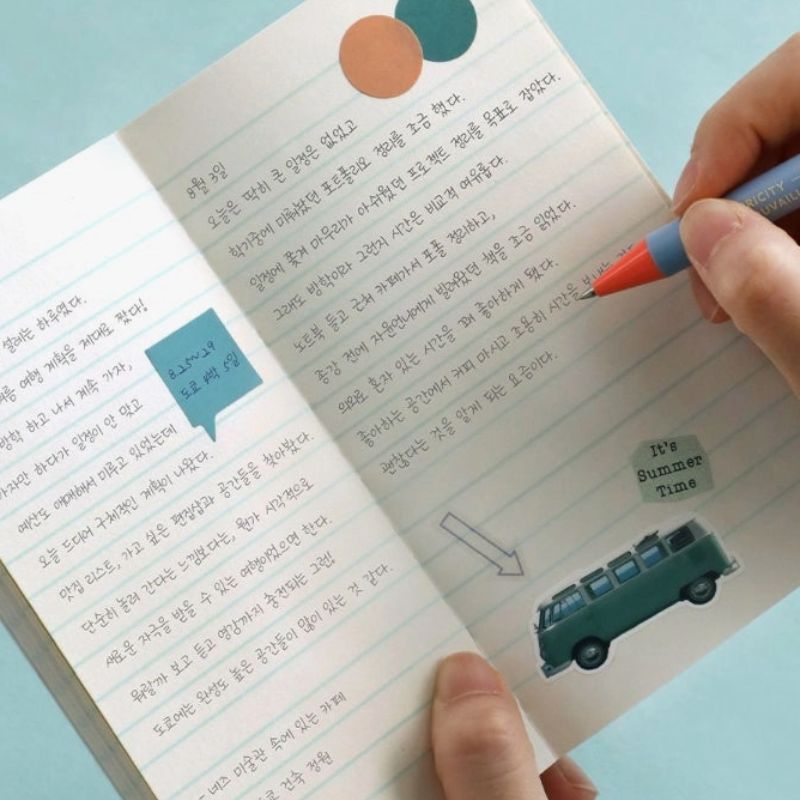 설레는 하루였다.
여행 계획을 제대로 짰다!
방학 하고 나서 계속 가자,
가자만 하다가 일정이 안 맞고
예산도 애매해서 미루고 있었는데
오늘 드디어 구체적인 계획이 나왔다.
맛집 리스트, 가고 싶은 편집샵과 공간들을 찾아봤다.
단순히 놀러 간다는 느낌보다는, 뭔가 시각적으로
새로운 자극을 받을 수 있는 여행이었으면 한다.
뭐랄까 보고 듣고 영감까지 충전되는 그런!
도쿄에는 완성도 높은 공간들이 많이 있는 것 같다.
- 네즈 미술관 속에 있는 카페
건축 정원
8.25~29
도쿄 4박 5일
8월 3일
오늘은 딱히 큰 일정은 없었고
학기중에 미뤄놨던 포트폴리오 정리를 조금 했다.
일정에 쫓겨 마무리가 아쉬웠던 프로젝트 정리를 목표로 잡았다.
그래도 방학이라 그런지 시간은 비교적 여유롭다.
노트북 들고 근처 카페가서 포폴 정리하고,
종강 전에 자원언니에게 빌려왔던 책을 조금 읽었다.
의외로 혼자 있는 시간을 꽤 좋아하게 됐다.
좋아하는 공간에서 커피 마시고 조용히 시간을 보내는
괜찮다는 것을 알게 되는 요즘이다.
It's
Summer
Time